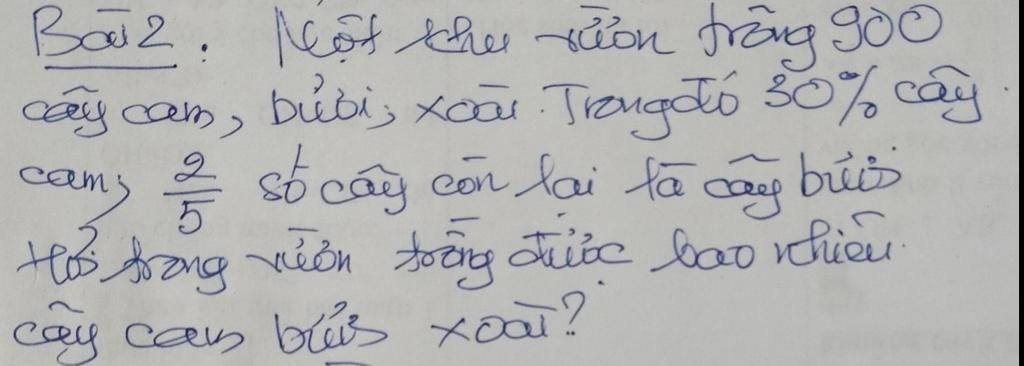 Bài 2: Một khu vườn trồng 900
cây cam, bưởi, xoài. Trong đó 30% cây
cam, 2/5 số cây còn lại là cây bưởi
Hỏi trong vườn trồng được bao nhiêu
cây cam bưởi xoài?